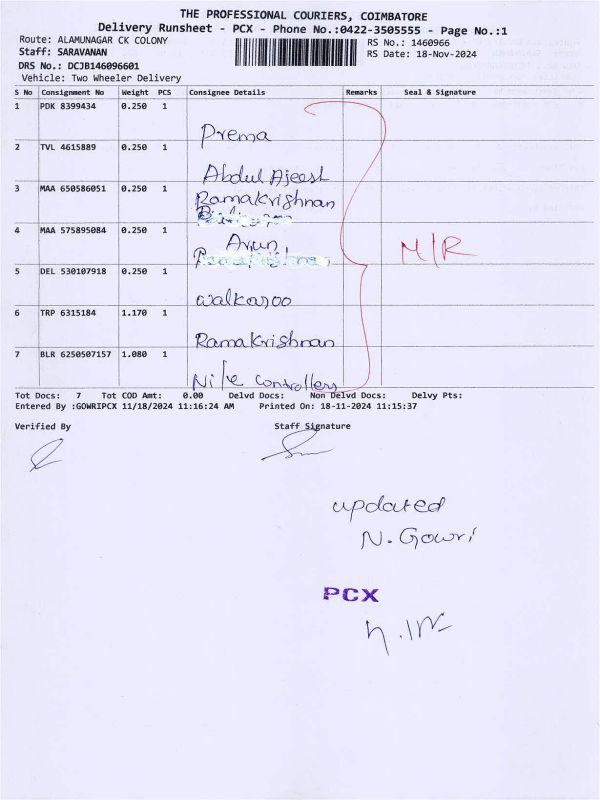 THE PROFESSIONAL COURIERS, COIMBATORE
Delivery Runsheet - PCX - Phone No.:0422-3505555 - Page No.:1
Route: ALAMUNAGAR CK COLONY
RS No.: 1460966
Staff: SARAVANAN
RS Date: 18-Nov-2024
DRS No.: DCJB146096601
Vehicle: Two Wheeler Delivery
S No Consignment No Weight PCS Consignee Details Remarks Seal & Signature
1 PDK 8399434 0.250 1
Prema
2 TVL 4615889 0.250 1
Abdul Ajeest
3 MAA 650586051 0.250 1
Ramakrishnan
4 MAA 575895084 0.250 1
Arun
M/R
5 DEL 530107918 0.250 1
walkaroo
6 TRP 6315184 1.170 1
Ramakrishnan
7 BLR 6250507157 1.080 1
Nile controllers
Tot Docs: 7 Tot COD Amt: 0.00 Delvd Docs: Non Delvd Docs: Delvy Pts:
Entered By :GOWRIPCX 11/18/2024 11:16:24 AM Printed On: 18-11-2024 11:15:37
Verified By Staff Signature
updated
N. Gowri
PCX